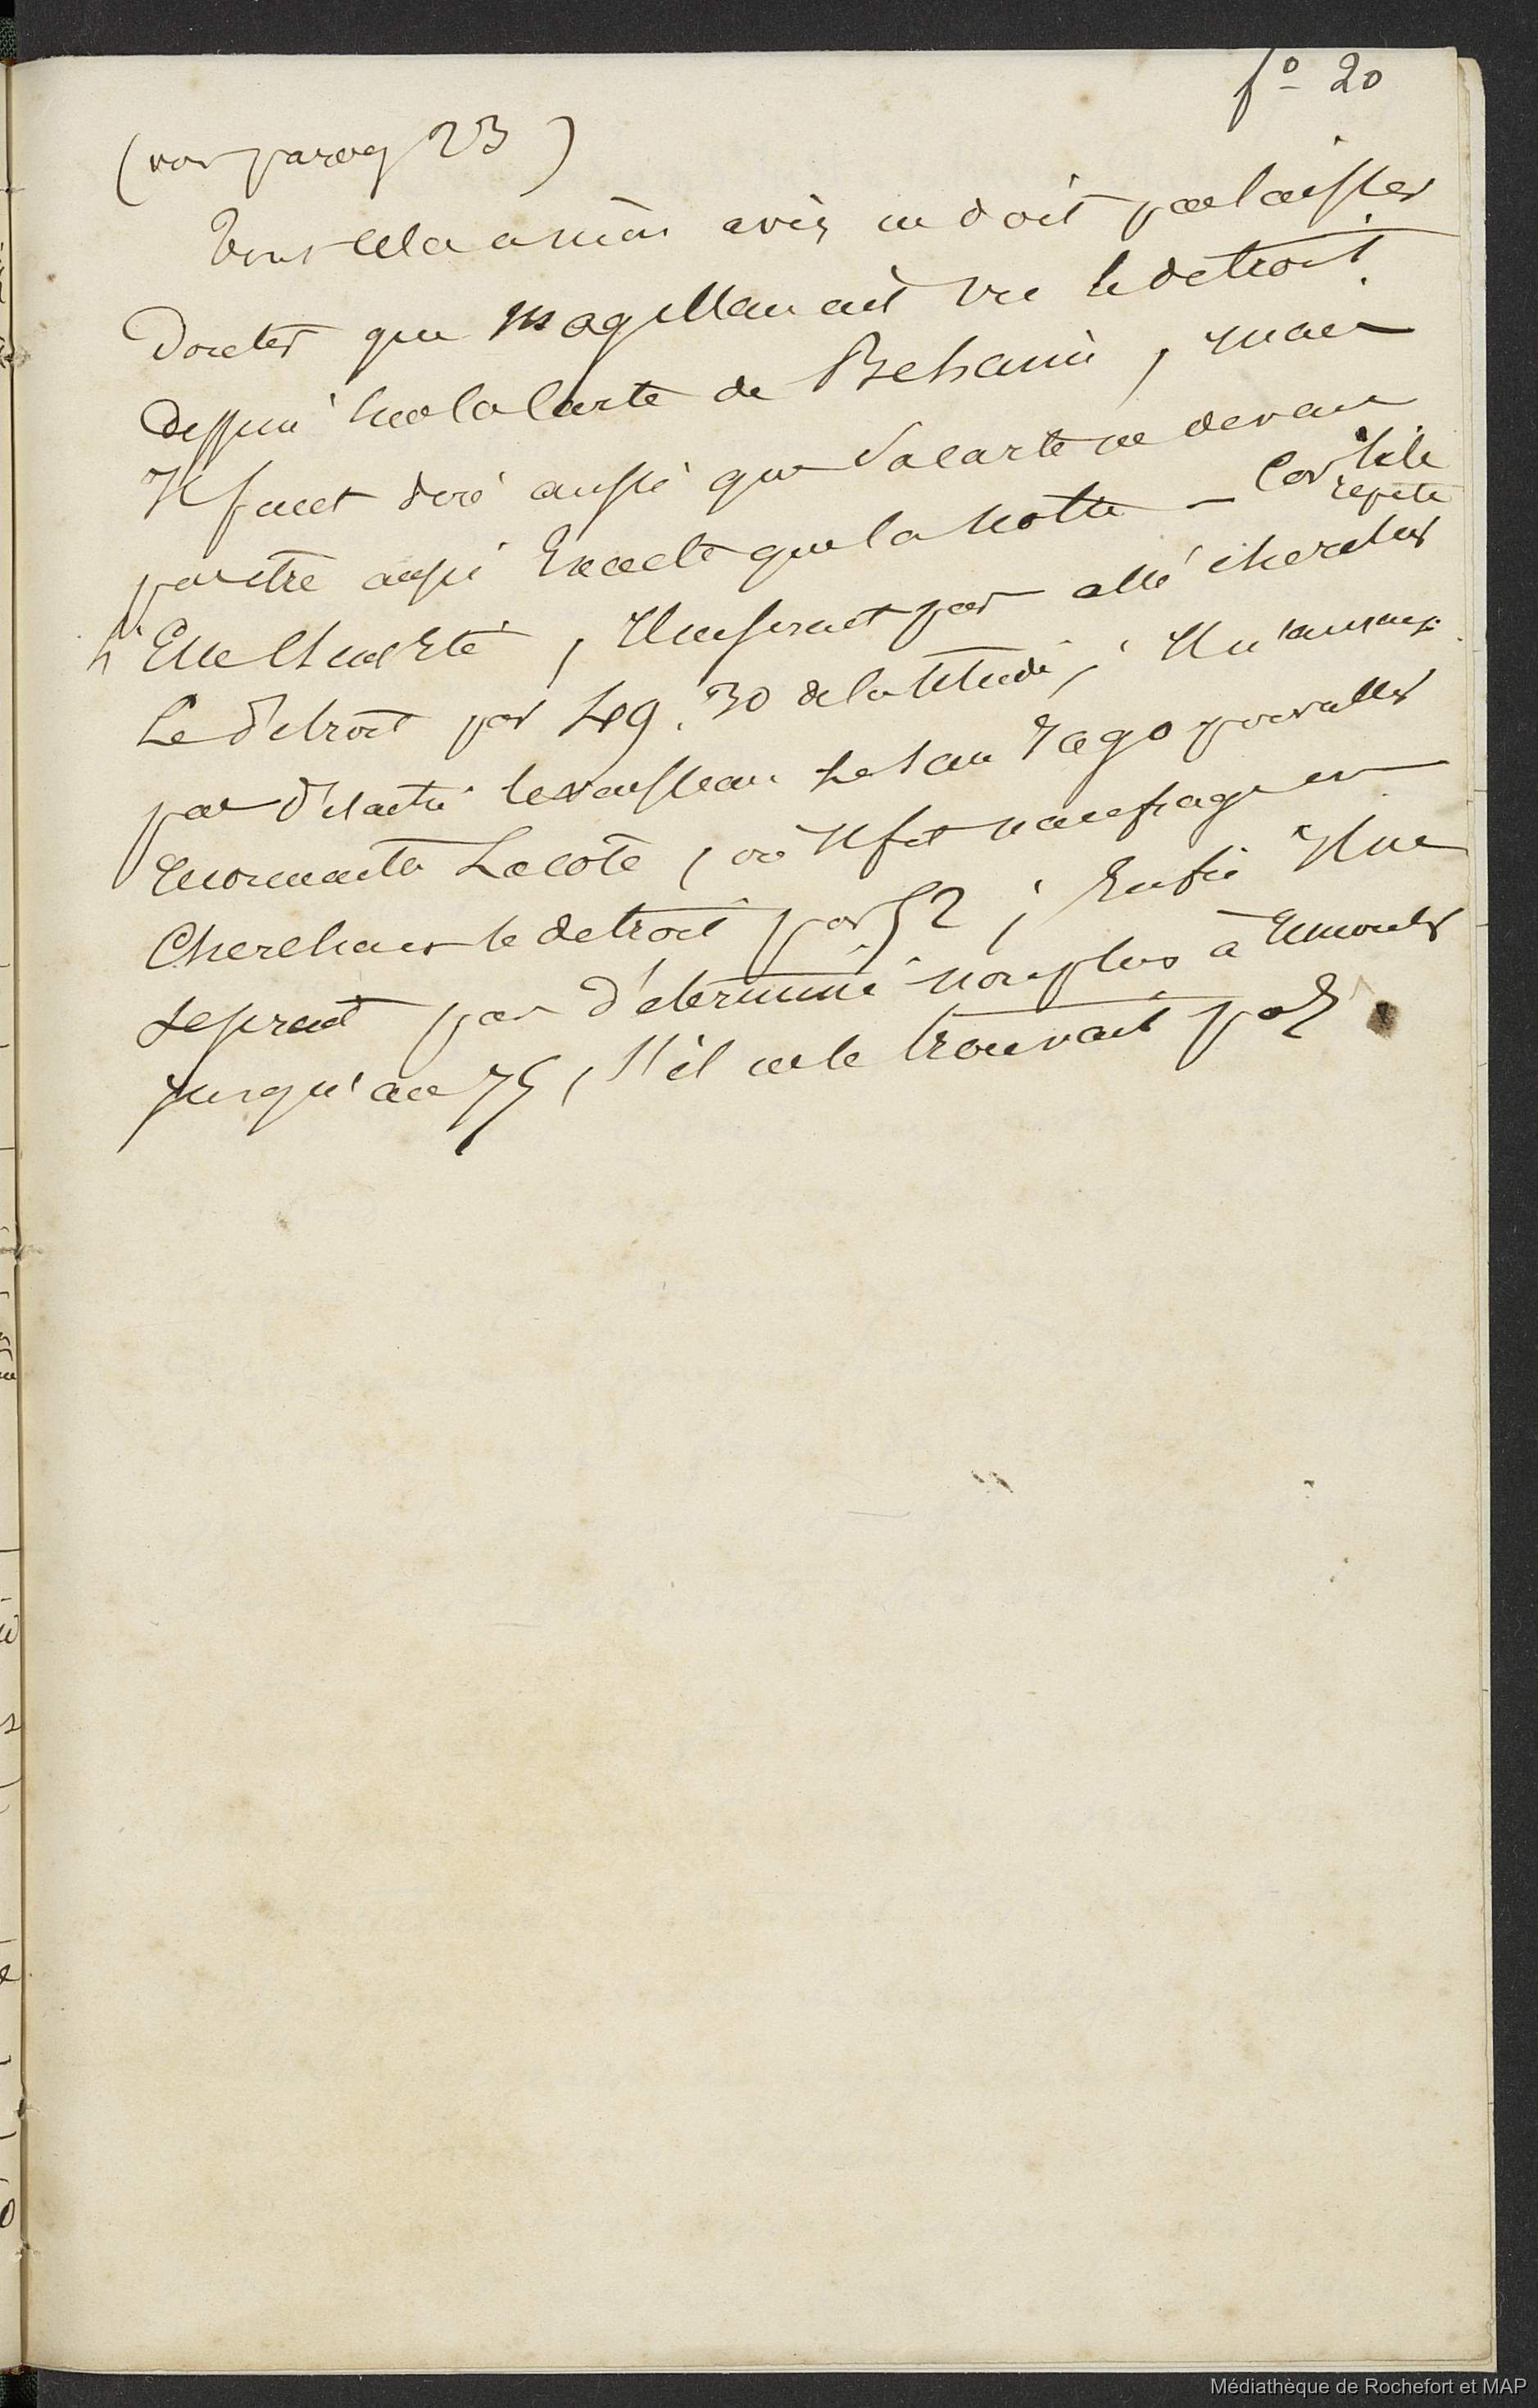 fº 20
(voir parag 23)
Tout cela a mon avis ne doit pas laisser
douter que Magellan ait vu le detroit
dessiné sur la Carte de Behaim, mais
Il faut dire aussi que sa carte ne devait
pas être aussi Exacte que la notre – Car je le repete
si Elle l'eut Eté, Il ne serait pas allé chercher
Le detroit par 49.30 de latitude; Il n'aurait
pas détaché le vaisseau le San Yago pour aller
reconnaitre La cote, où Il fit naufrage en
Cherchant le detroit par 52; Enfin Il ne
serait pas déterminé non plus à remonter
jusqu'au 75, s'il ne le trouvait pas
Médiathèque de Rochefort et MAP